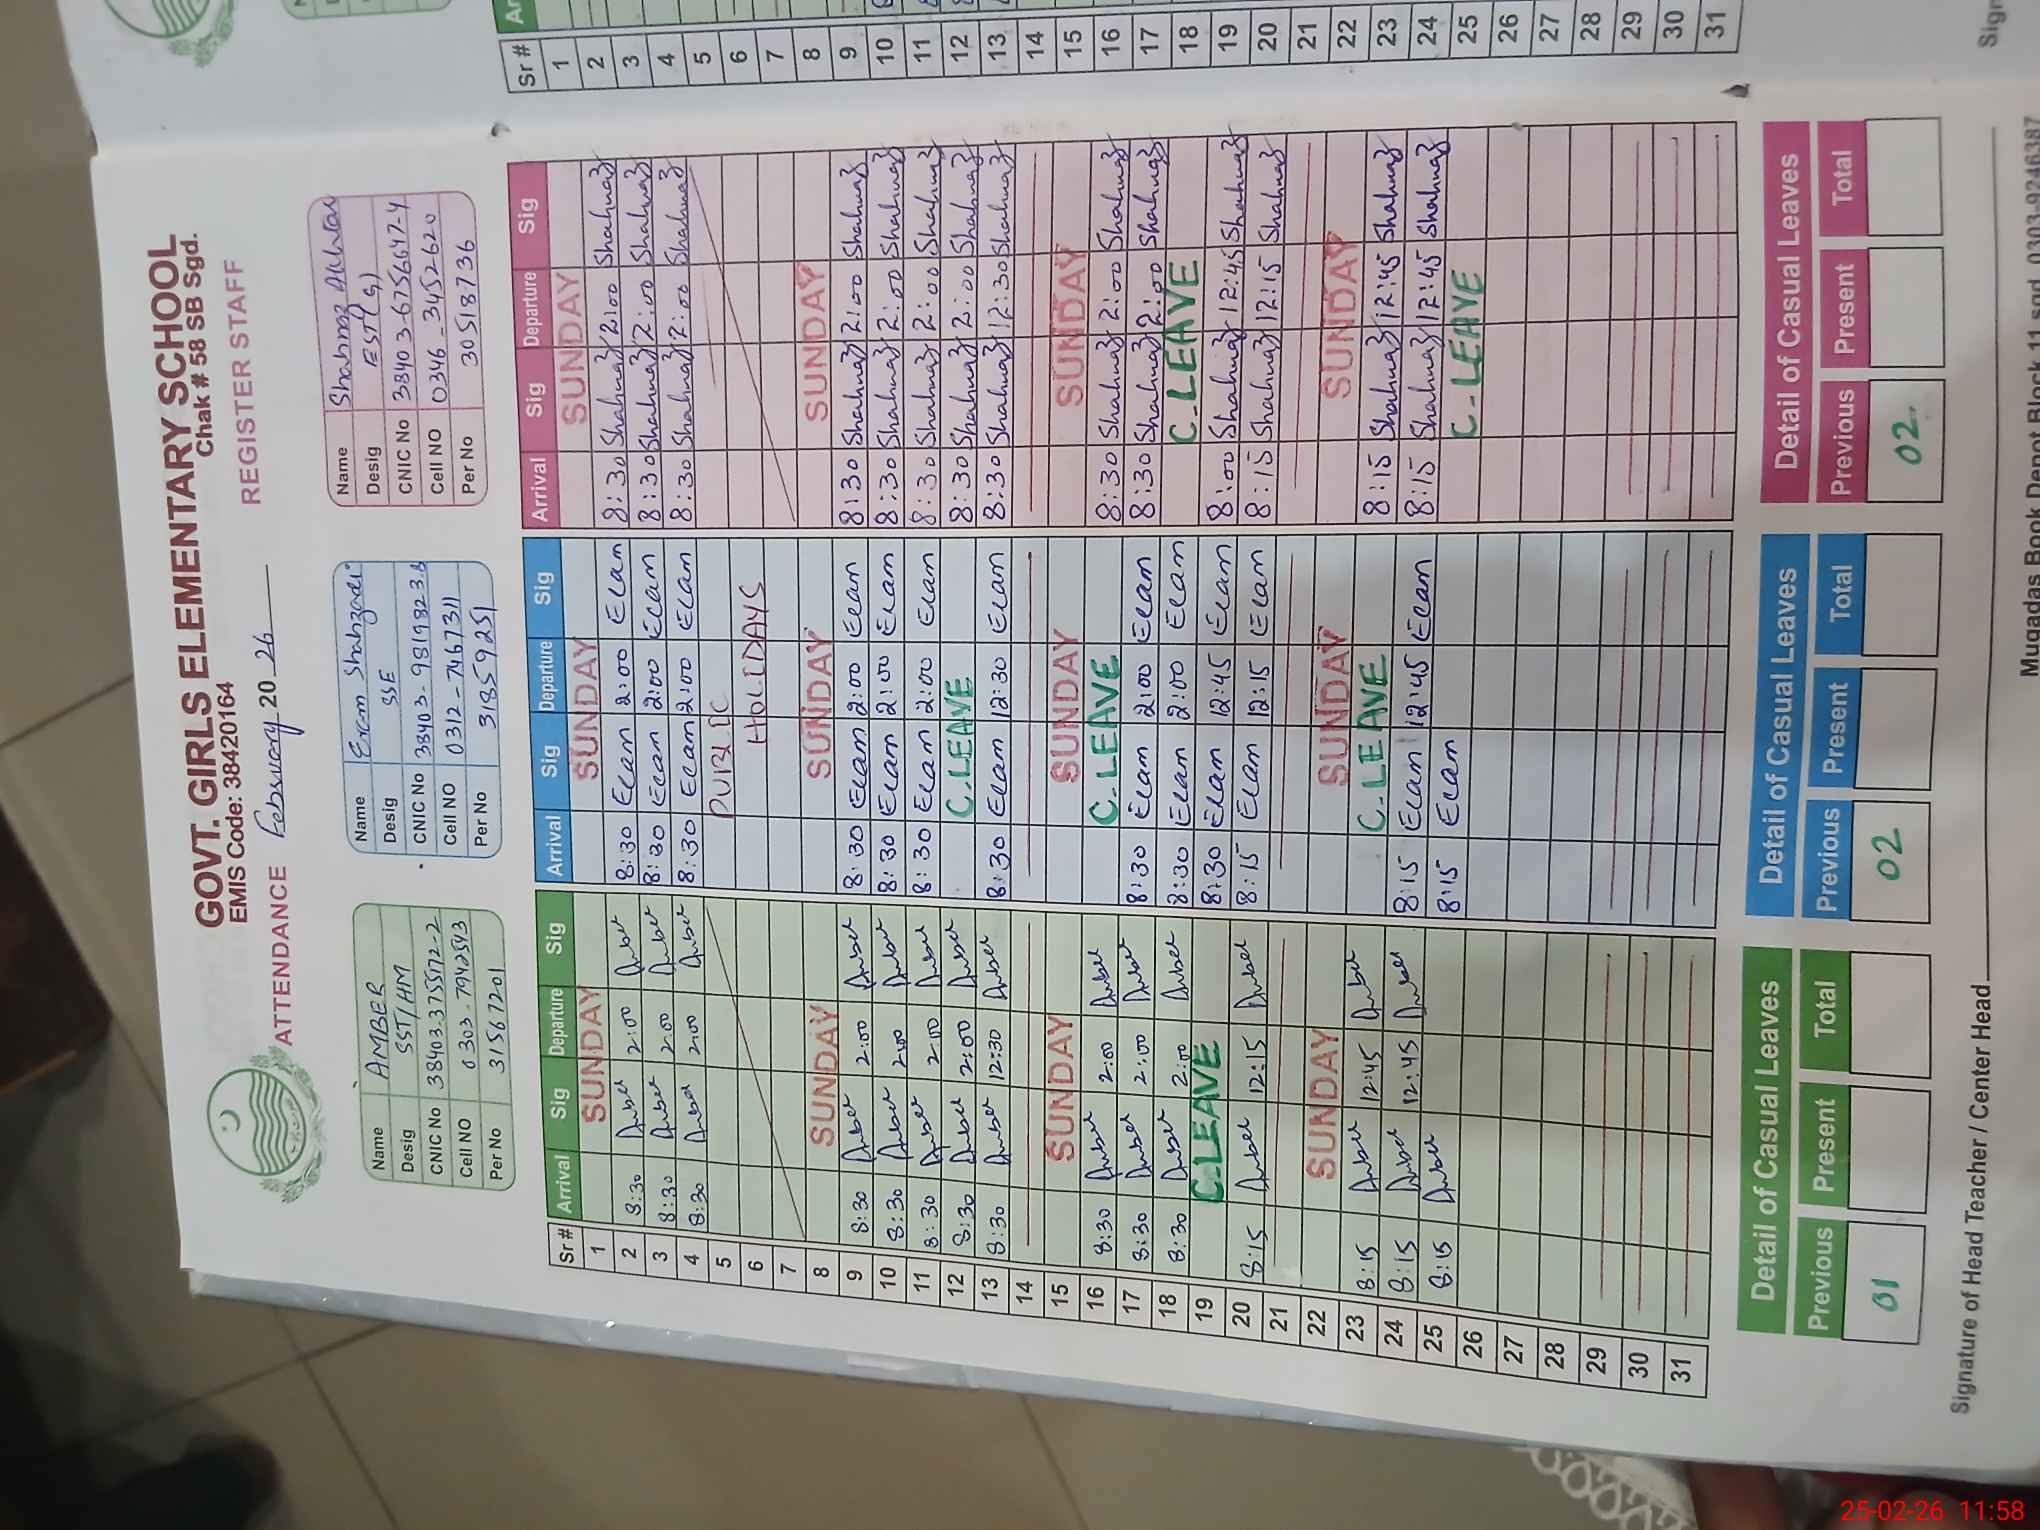 GOVT. GIRLS ELEMENTARY SCHOOL
EMIS Code: 38420164 Chak # 58 SB Sgd.
ATTENDANCE February 20 26 REGISTER STAFF
Name AMBER
Desig SST/HM
CNIC No 38403-3755172-2
Cell NO 0303-7942543
Per No 31567201
Name Eram Shahzadi
Desig SSE
CNIC No 38403-9819823-8
Cell NO 0312-7467311
Per No 31859251
Name Shahnaz Akhtar
Desig EST(G)
CNIC No 38403-6756647-4
Cell NO 0346-3452620
Per No 30518736
Sr# Arrival Sig Departure Sig Arrival Sig Departure Sig Arrival Sig Departure Sig
1 SUNDAY SUNDAY SUNDAY
2 8:30 Amber 2:00 Amber 8:30 Eram 2:00 Eram 8:30 Shahnaz 2:00 Shahnaz
3 8:30 Amber 2:00 Amber 8:30 Eram 2:00 Eram 8:30 Shahnaz 2:00 Shahnaz
4 8:30 Amber 2:00 Amber 8:30 Eram 2:00 Eram 8:30 Shahnaz 2:00 Shahnaz
5 PUBLIC
6 HOLIDAYS
7
8 SUNDAY SUNDAY SUNDAY
9 8:30 Amber 2:00 Amber 8:30 Eram 2:00 Eram 8:30 Shahnaz 2:00 Shahnaz
10 8:30 Amber 2:00 Amber 8:30 Eram 2:00 Eram 8:30 Shahnaz 2:00 Shahnaz
11 8:30 Amber 2:00 Amber 8:30 Eram 2:00 Eram 8:30 Shahnaz 2:00 Shahnaz
12 8:30 Amber 2:00 Amber C.LEAVE 8:30 Shahnaz 2:00 Shahnaz
13 8:30 Amber 12:30 Amber 8:30 Eram 12:30 Eram 8:30 Shahnaz 12:30 Shahnaz
14
15 SUNDAY SUNDAY SUNDAY
16 8:30 Amber 2:00 Amber C.LEAVE 8:30 Shahnaz 2:00 Shahnaz
17 8:30 Amber 2:00 Amber 8:30 Eram 2:00 Eram 8:30 Shahnaz 2:00 Shahnaz
18 8:30 Amber 2:00 Amber 8:30 Eram 2:00 Eram C.LEAVE
19 C.LEAVE 8:30 Eram 12:45 Eram 8:00 Shahnaz 12:45 Shahnaz
20 8:15 Amber 12:15 Amber 8:15 Eram 12:15 Eram 8:15 Shahnaz 12:15 Shahnaz
21
22 SUNDAY SUNDAY SUNDAY
23 8:15 Amber 12:45 Amber C.LEAVE 8:15 Shahnaz 12:45 Shahnaz
24 8:15 Amber 12:45 Amber 8:15 Eram 12:45 Eram 8:15 Shahnaz 12:45 Shahnaz
25 8:15 Amber 8:15 Eram C-LEAVE
26
27
28
29
30
31
Detail of Casual Leaves Detail of Casual Leaves Detail of Casual Leaves
Previous Present Total Previous Present Total Previous Present Total
01 02 02
Signature of Head Teacher / Center Head
Muqadas Book Depot Block 11 sgd 0303-9246387
Sr#
1
2
3
4
5
6
7
8
9
10
11
12
13
14
15
16
17
18
19
20
21
22
23
24
25
26
27
28
29
30
31
25-02-26 11:58